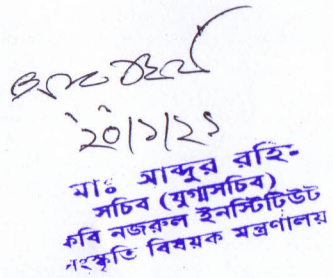 ২০/১/২১
মাঃ আব্দুর রহি-
সচিব (যুগ্মসচিব)
কবি নজরুল ইনস্টিটিউট
সংস্কৃতি বিষয়ক মন্ত্রণালয়